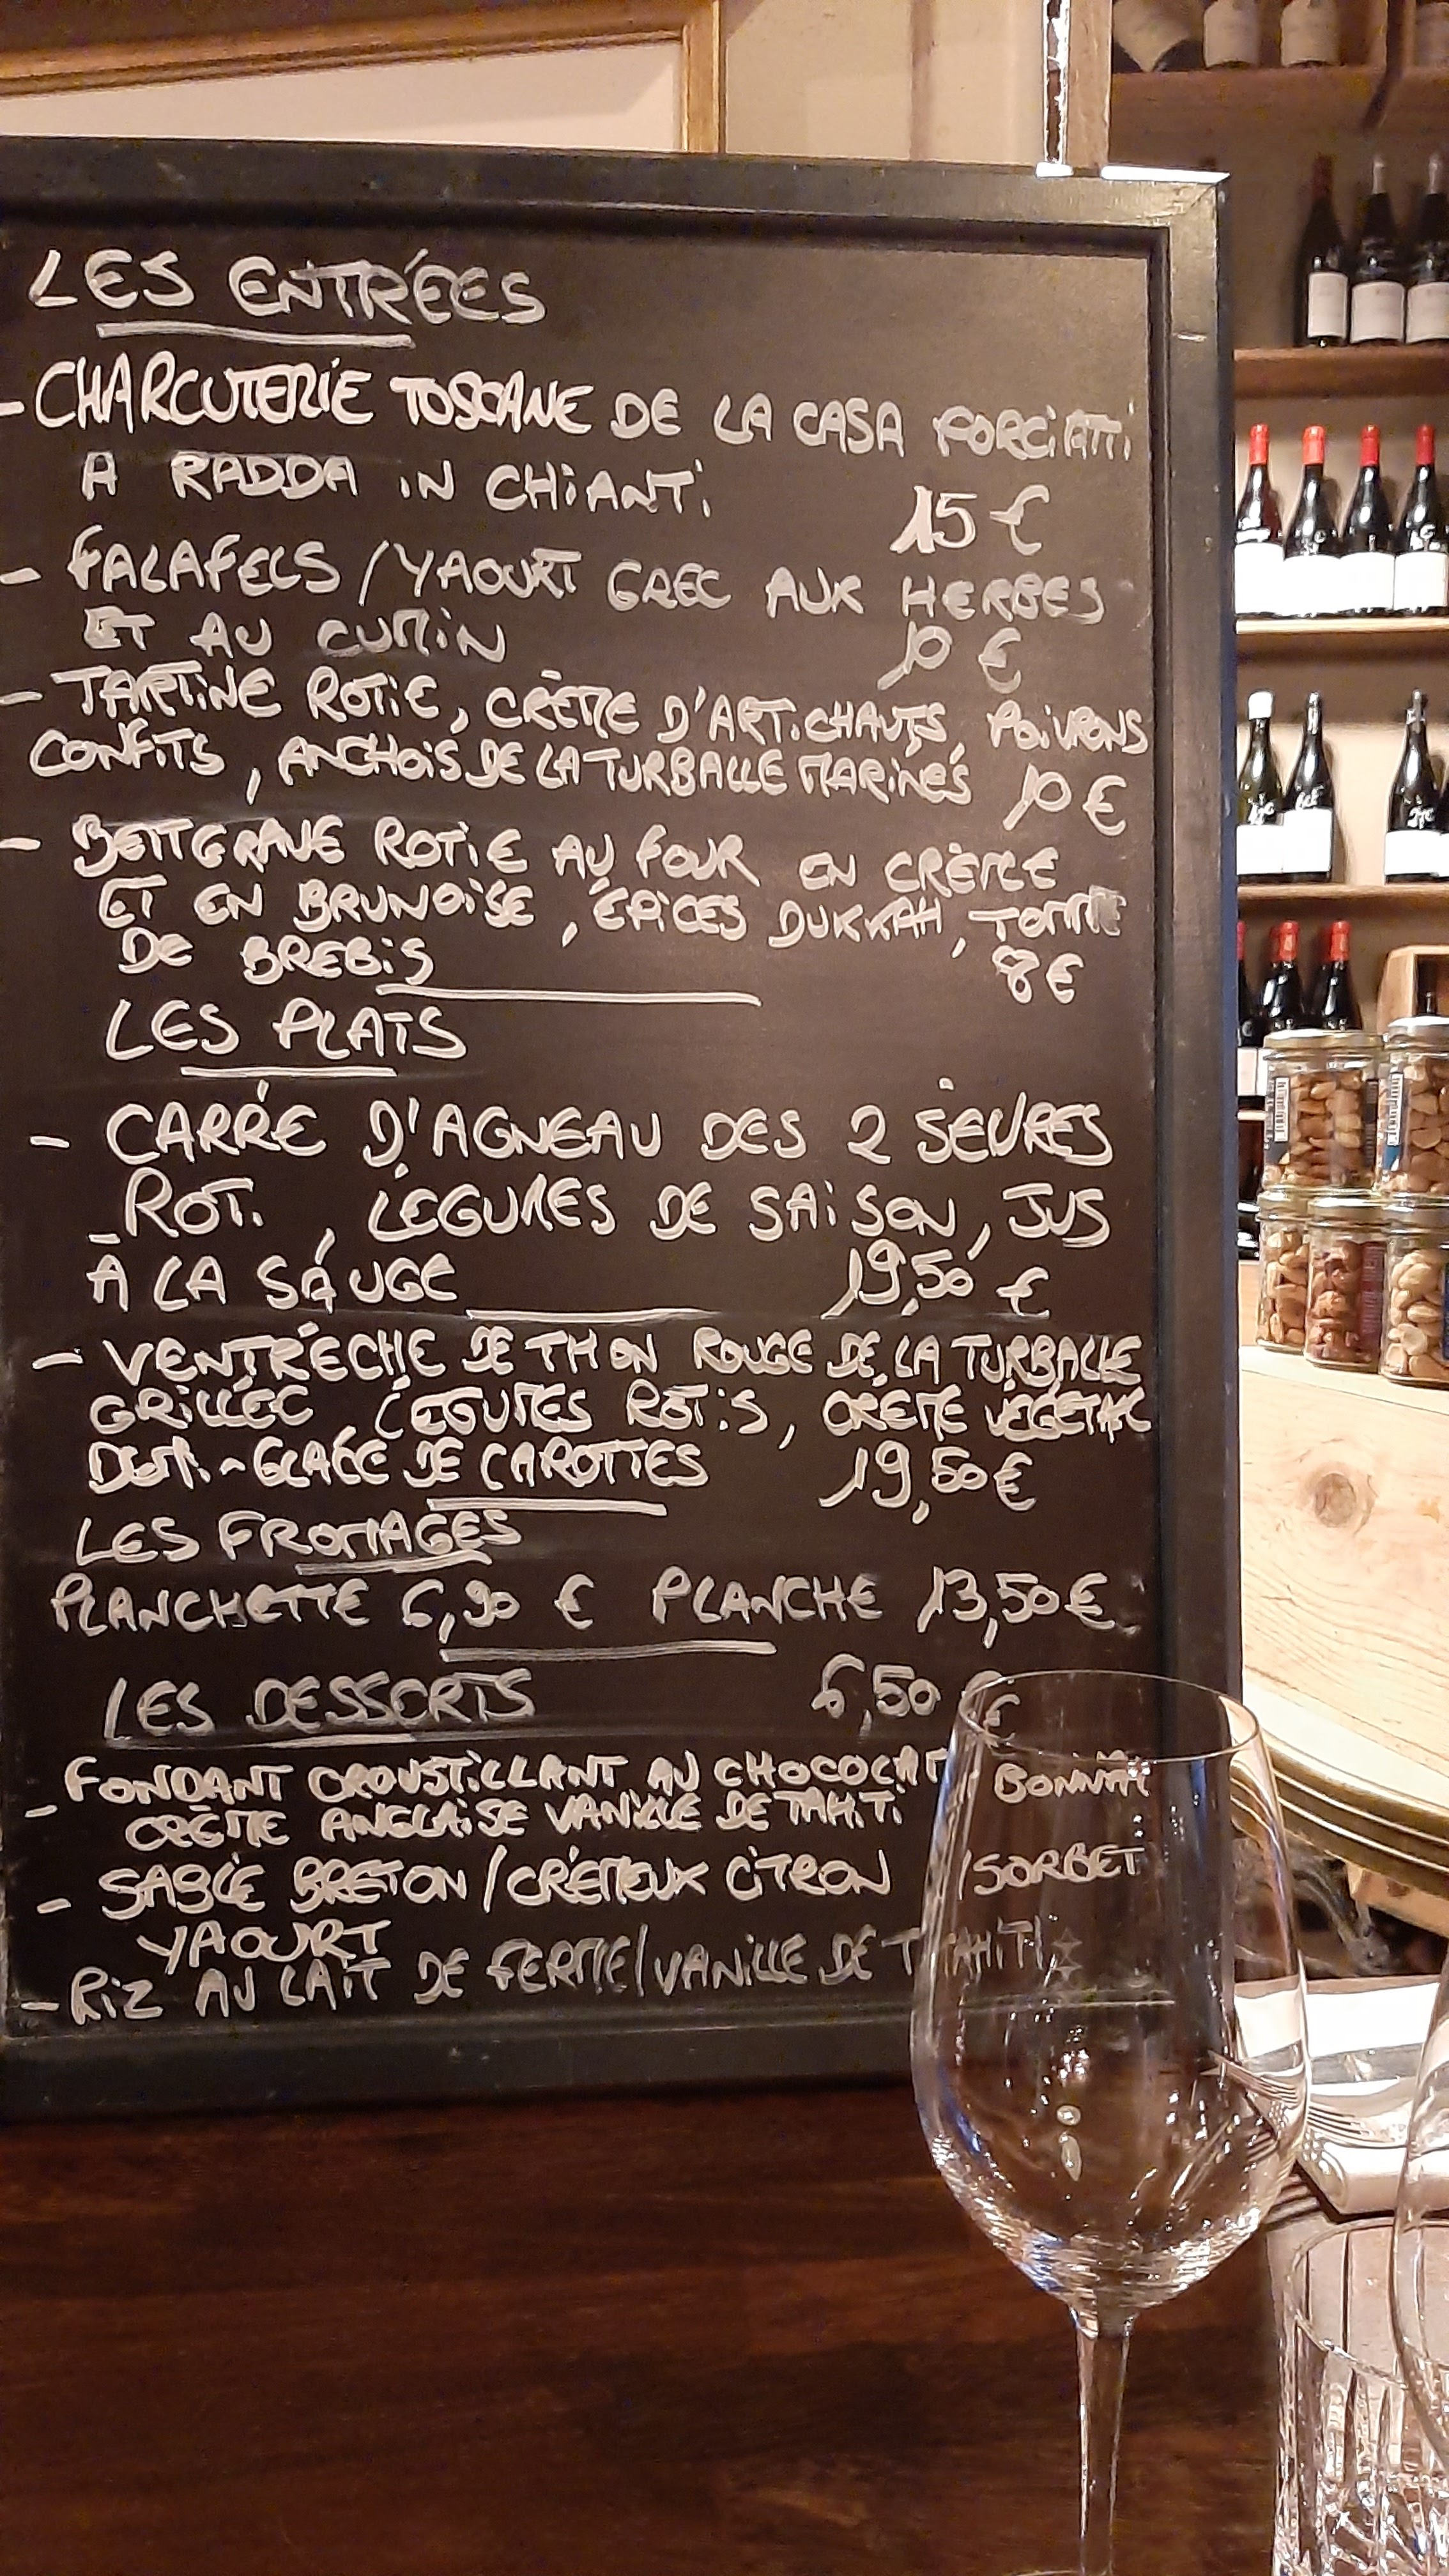 LES ENTRÉES
-CHARCUTERIE TOSCANE DE LA CASA PORCIATTI
A RADDA IN CHIANTI 15 €
- FALAFELS / YAOURT GREC AUX HERBES
ET AU CUMIN 10 €
- TARTINE ROTIE, CRÈME D'ARTICHAUTS, POIVRONS
CONFITS, ANCHOIS DE LA TURBALLE MARINÉS 10 €
- BETTERAVE ROTIE AU FOUR EN CRÈME
ET EN BRUNOISE, ÉPICES DUKKAH, TOMME
DE BREBIS 8 €
LES PLATS
- CARRÉ D'AGNEAU DES 2 SÈVRES
ROTI, LÉGUMES DE SAISON, JUS
À LA SAUGE 19,50 €
- VENTRÈCHE DE THON ROUGE DE LA TURBALLE
GRILLÉE, LÉGUMES ROTIS, CRÈME VÉGÉTALE
DEMI-GLACÉE DE CAROTTES 19,50 €
LES FROMAGES
PLANCHETTE 6,90 € PLANCHE 13,50 €
LES DESSERTS 6,50 €
- FONDANT CROUSTILLANT AU CHOCOLAT BONNAT
CRÈME ANGLAISE VANILLE DE TAHITI
- SABLÉ BRETON / CRÉMEUX CITRON / SORBET
YAOURT
- RIZ AU LAIT DE FERME / VANILLE DE TAHITI